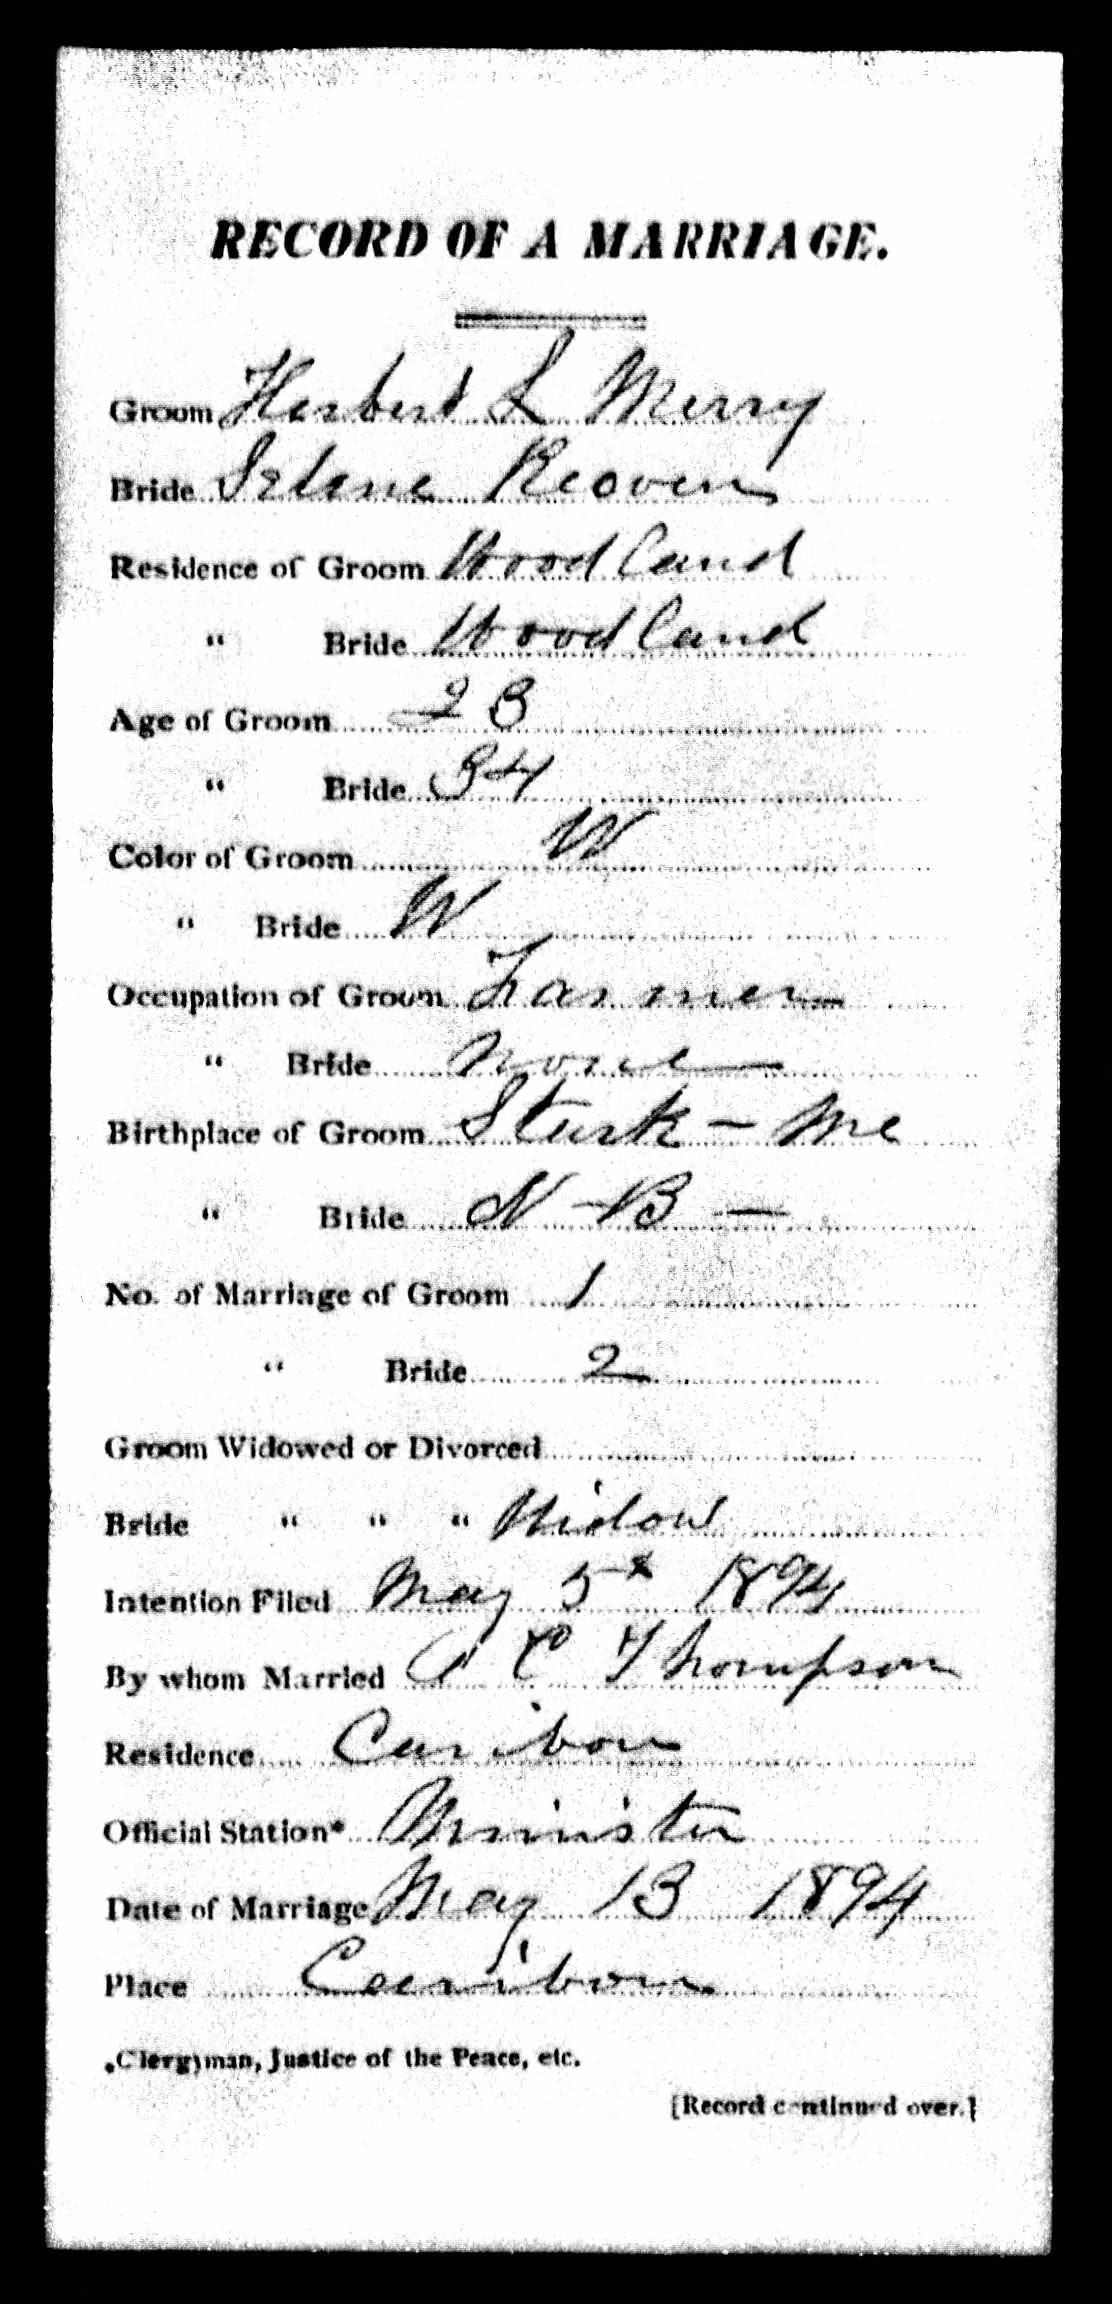 RECORD OF A MARRIAGE.
Groom Herbert L Merry
Bride
Residence of Groom Woodland
" Bride Woodland
Age of Groom 23
" Bride 34
Color of Groom W
" Bride W
Occupation of Groom Farmer
" Bride None
Birthplace of Groom - Me
" Bride N-B-
No. of Marriage of Groom 1
" Bride 2
Groom Widowed or Divorced
Bride " " " Widow
Intention Filed May 5 1894
By whom Married C Thompson
Residence Caribou
Official Station* Minister
Date of Marriage May 13 1894
Place Caribou
*Clergyman, Justice of the Peace, etc.
[Record continued over.]